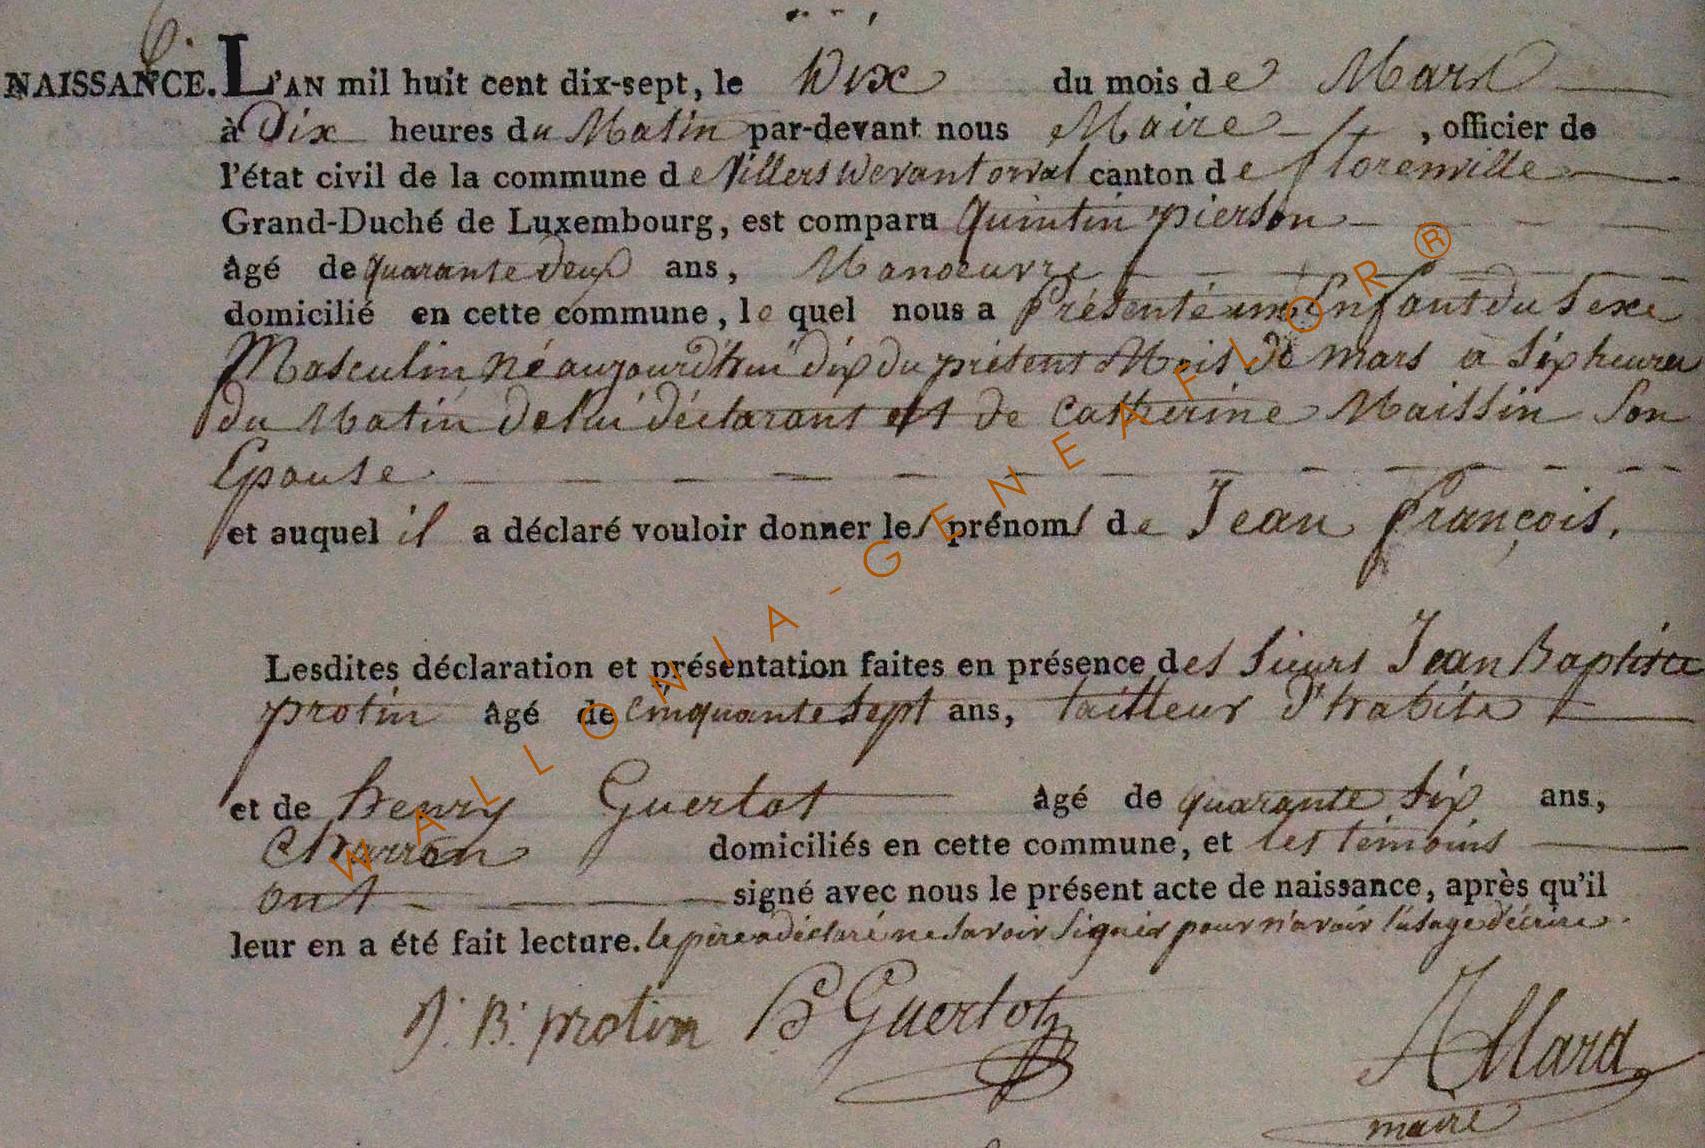 6.
NAISSANCE. L'AN mil huit cent dix-sept, le Dix du mois de Mars
à Dix heures du Matin par-devant nous Maire, officier de
l'état civil de la commune de Villers Devant orval canton de florenville
Grand-Duché de Luxembourg, est comparu Quintin pierson
âgé de quarante deux ans, Manoeuvre
domicilié en cette commune, le quel nous a Présenté un Enfant du Sexe
Masculin né aujourd'hui dix du présent Mois de mars a Six heures
du Matin de lui déclarant et de Catherine Maissin Son
Epouse
et auquel il a déclaré vouloir donner les prénoms de Jean françois.
Lesdites déclaration et présentation faites en présence des Sieurs Jean Baptiste
protin âgé de cinquante Sept ans, tailleur d'habits
et de henry Guerlot âgé de quarante Six ans,
Charron domiciliés en cette commune, et les témoins
ont signé avec nous le présent acte de naissance, après qu'il
leur en a été fait lecture. le père a déclaré ne Savoir Signer pour n'avoir l'usage d'écrire.
J: B: protin H Guerlot
maire
WALLONIA-GENEAFLOR®